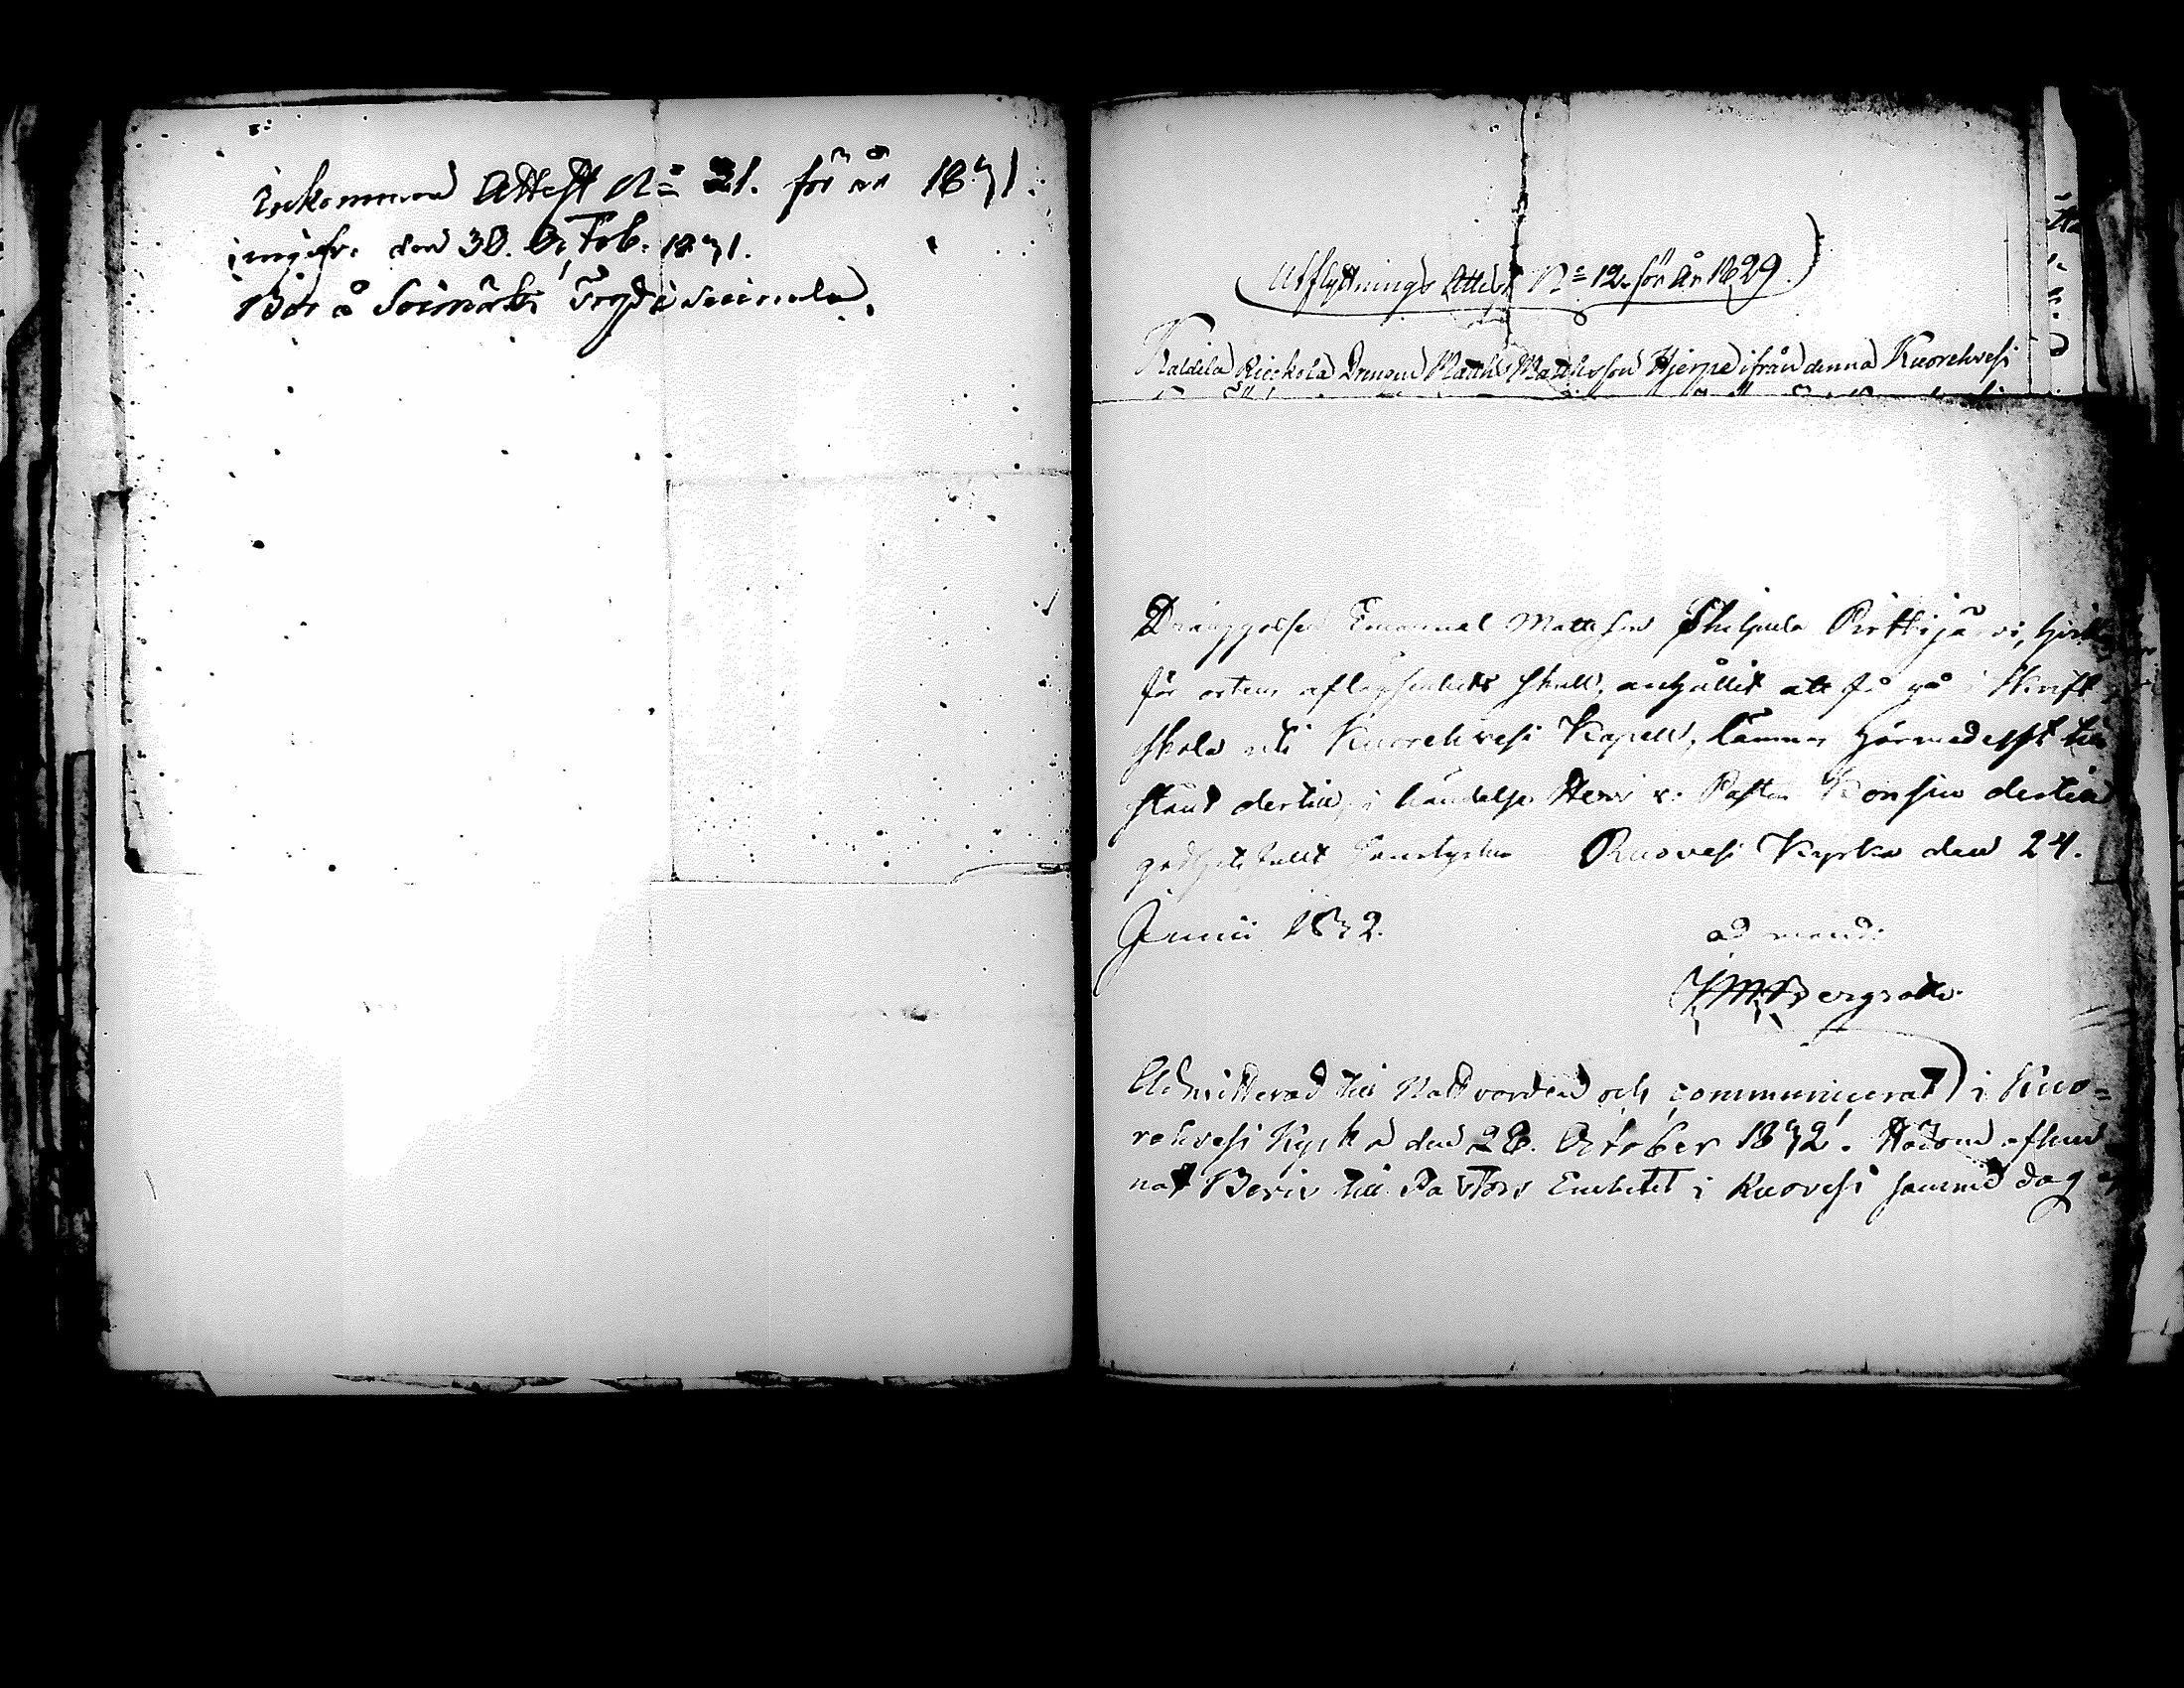 Inkommen Attest No 21. för år 1831.
ingifv. den 30. Octob. 1831.
Bor å Soimäki Torp i
Utflyttnings Attest No 12. för År 1829.
Kaldila Rieckola Drengen Matths Mathsson Hjerpe ifrån denna Kuorehvesi
Dränggossen Emanuel Mattsson Philpula Pirttijärvi,
för ortens aflägsenhets skull, anhållit att få gå i Skrift
skola uti Kuorehvesi Kapell, lämnas härmedelst till
stånd dertill, i händelse Herr v. Pastor Bonsin dertill
godhetsfullt samtycker Ruovesi Kyrka den 24.
Junii 1832. ad mand:
Bergroth.
Admitterad till Nattvarden och communicerat i Kuo=
rehvesi Kyrka den 28. October 1832. Härom aflem
nat Bevis till Pastors Embetet i Ruovesi samma dag